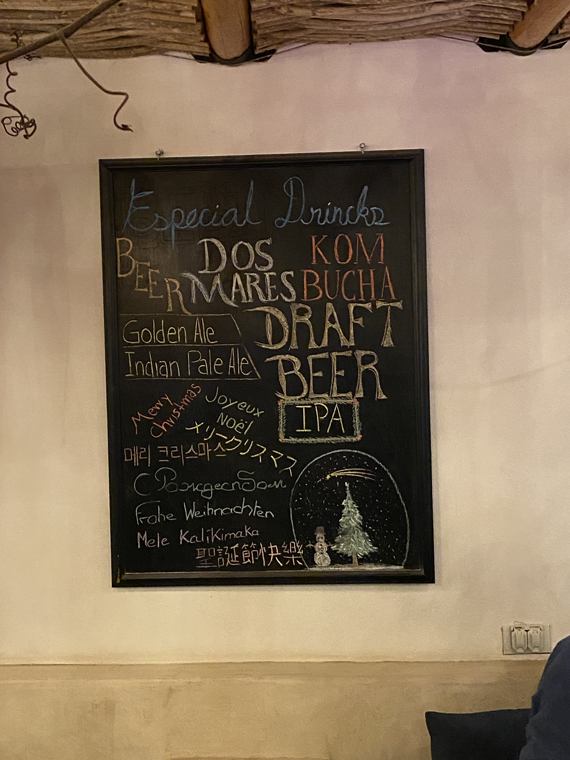 Especial Drincks
BEER
DOS
MARES
KOM
BUCHA
Golden Ale
Indian Pale Ale
DRAFT
BEER
IPA
Merry
Christmas
Joyeux
Noël
メリークリスマス
메리 크리스마스
Frohe Weihnachten
Mele Kalikimaka
聖誕節快樂